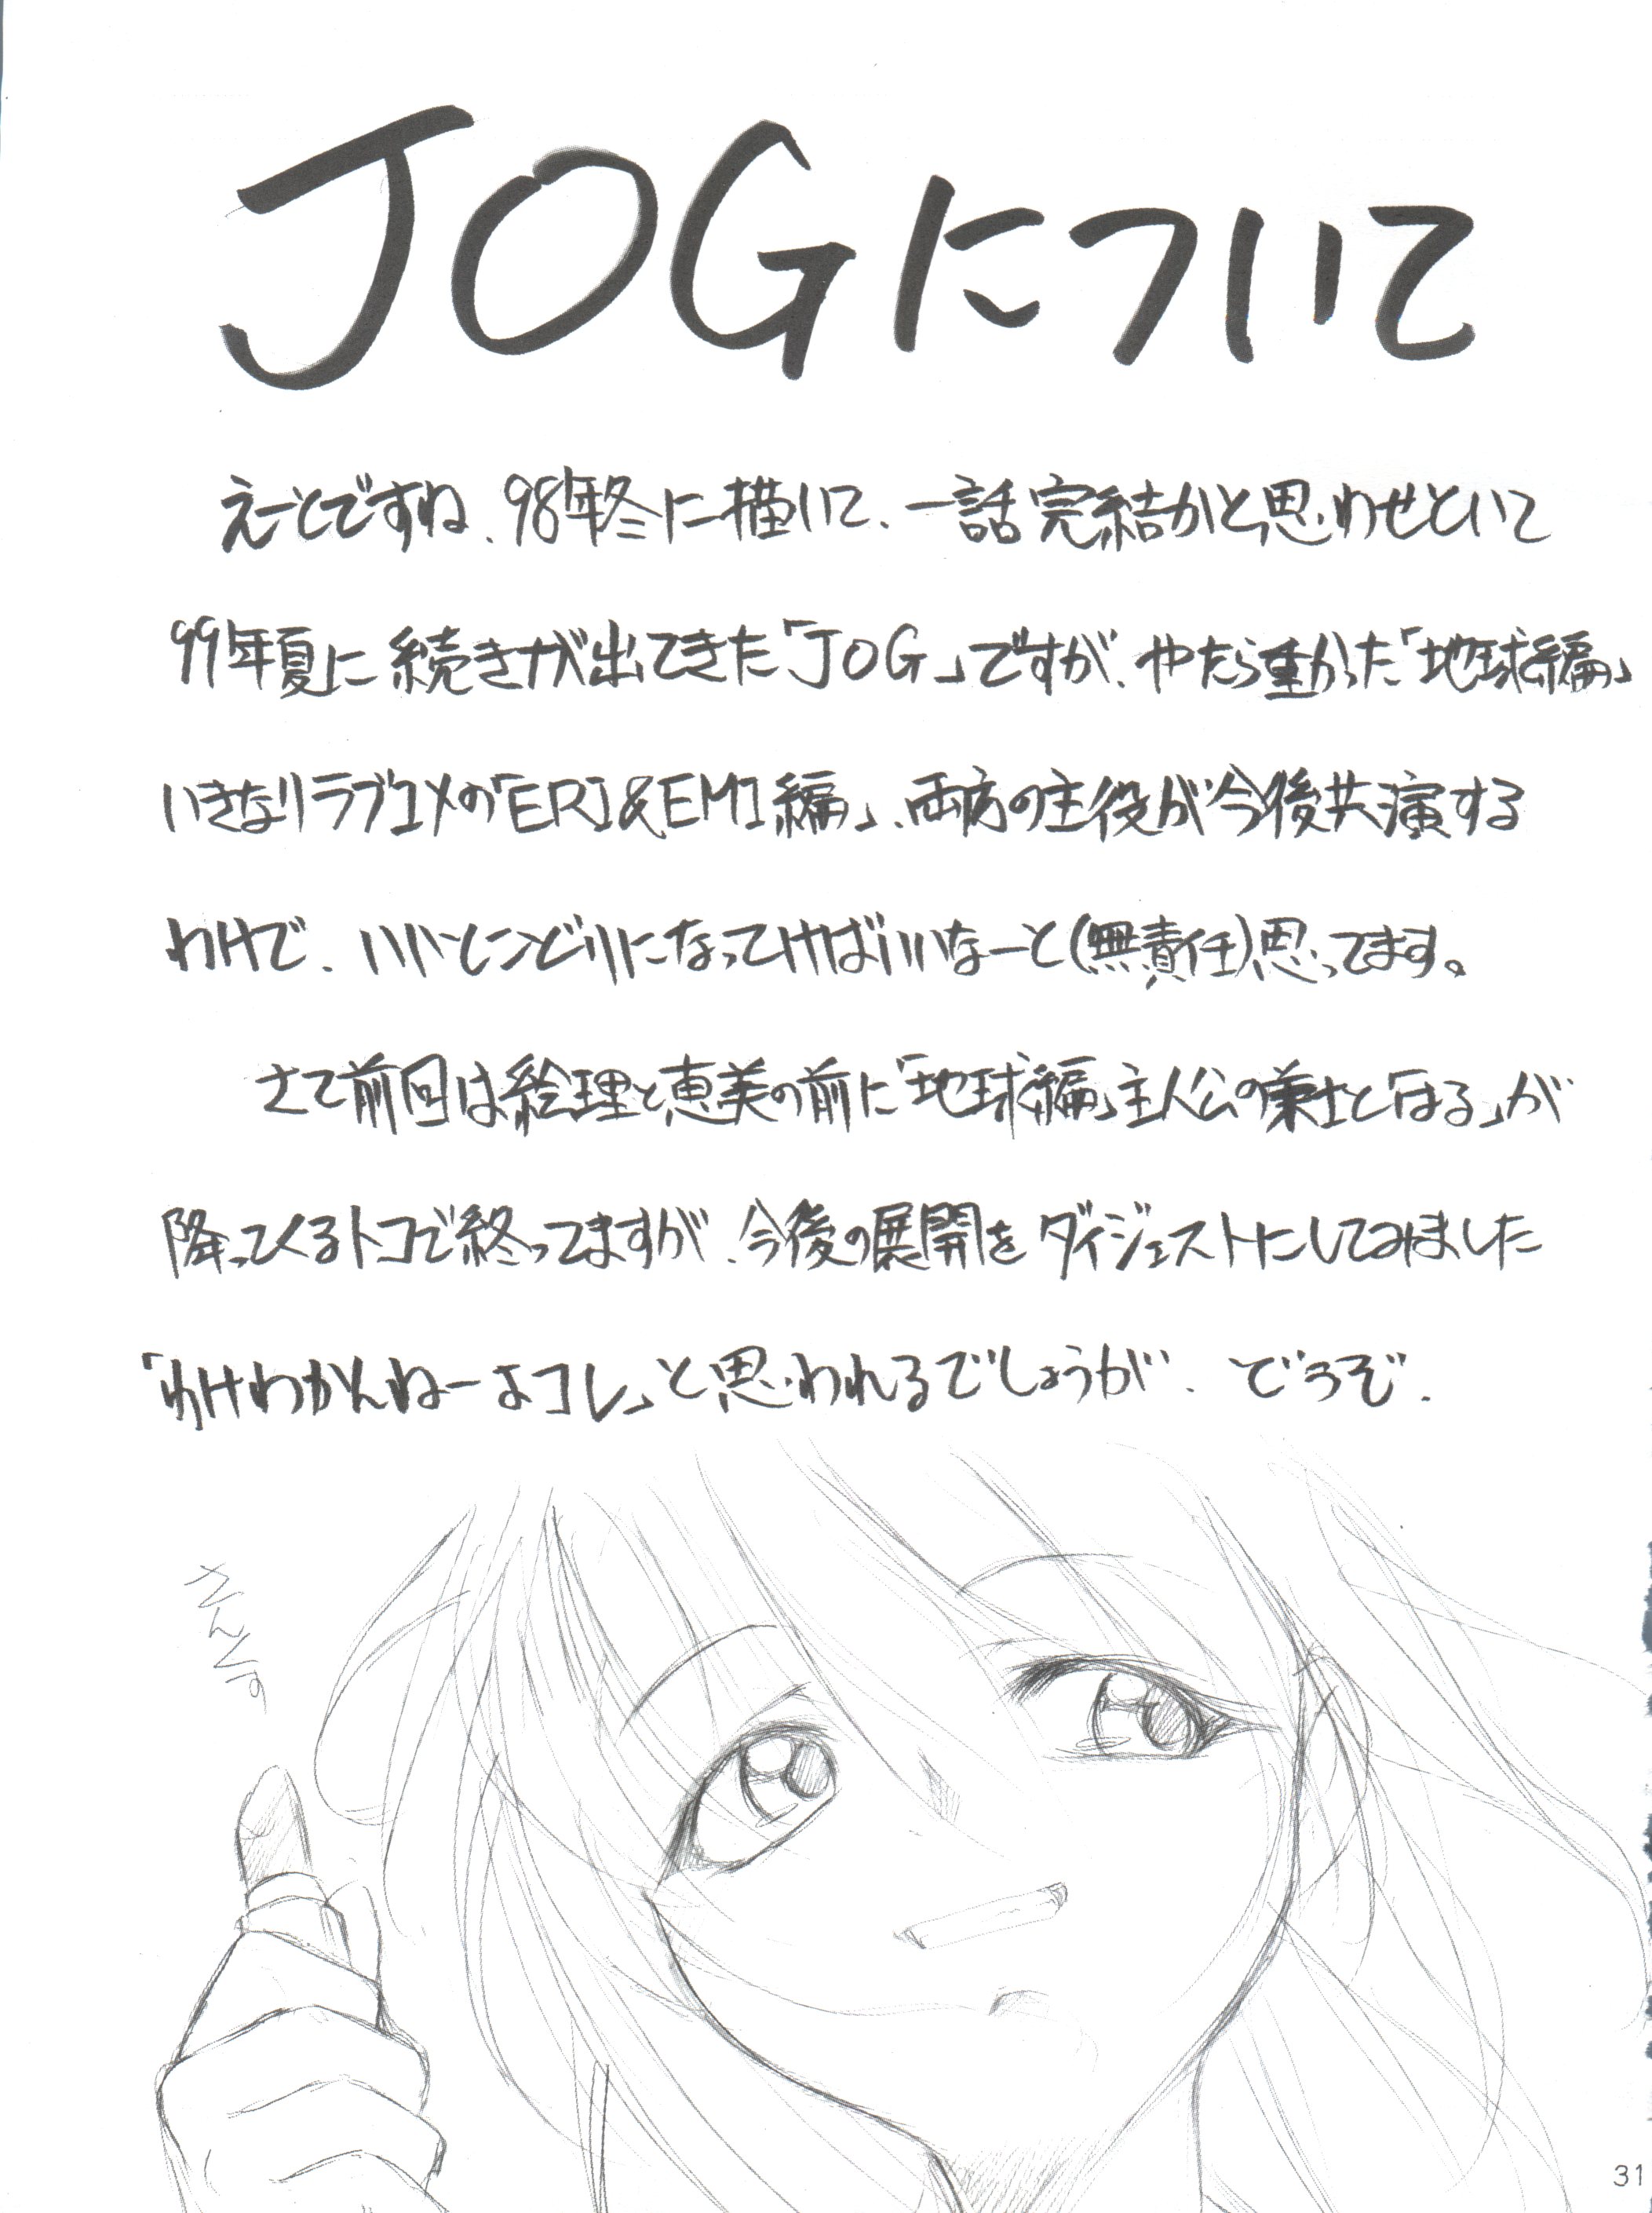 JOGについて
えーとですね、98年冬に描いて、一話完結かと思わせといて
99年夏に続きが出てきた「JOG」ですが、やたら重かった「地球編」
いきなりラブコメの「ERI&EMI編」、両方の主役が今後共演する
わけで、いいとこどりになってけばいいなーと(無責任)思ってます。
さて前回は絵理と恵美の前に「地球編」主人公の兼士と「はる」が
降ってくるトコで終ってますが、今後の展開をダイジェストにしてみました
「わけわかんねーよコレ」と思われるでしょうが、どうぞ。
31